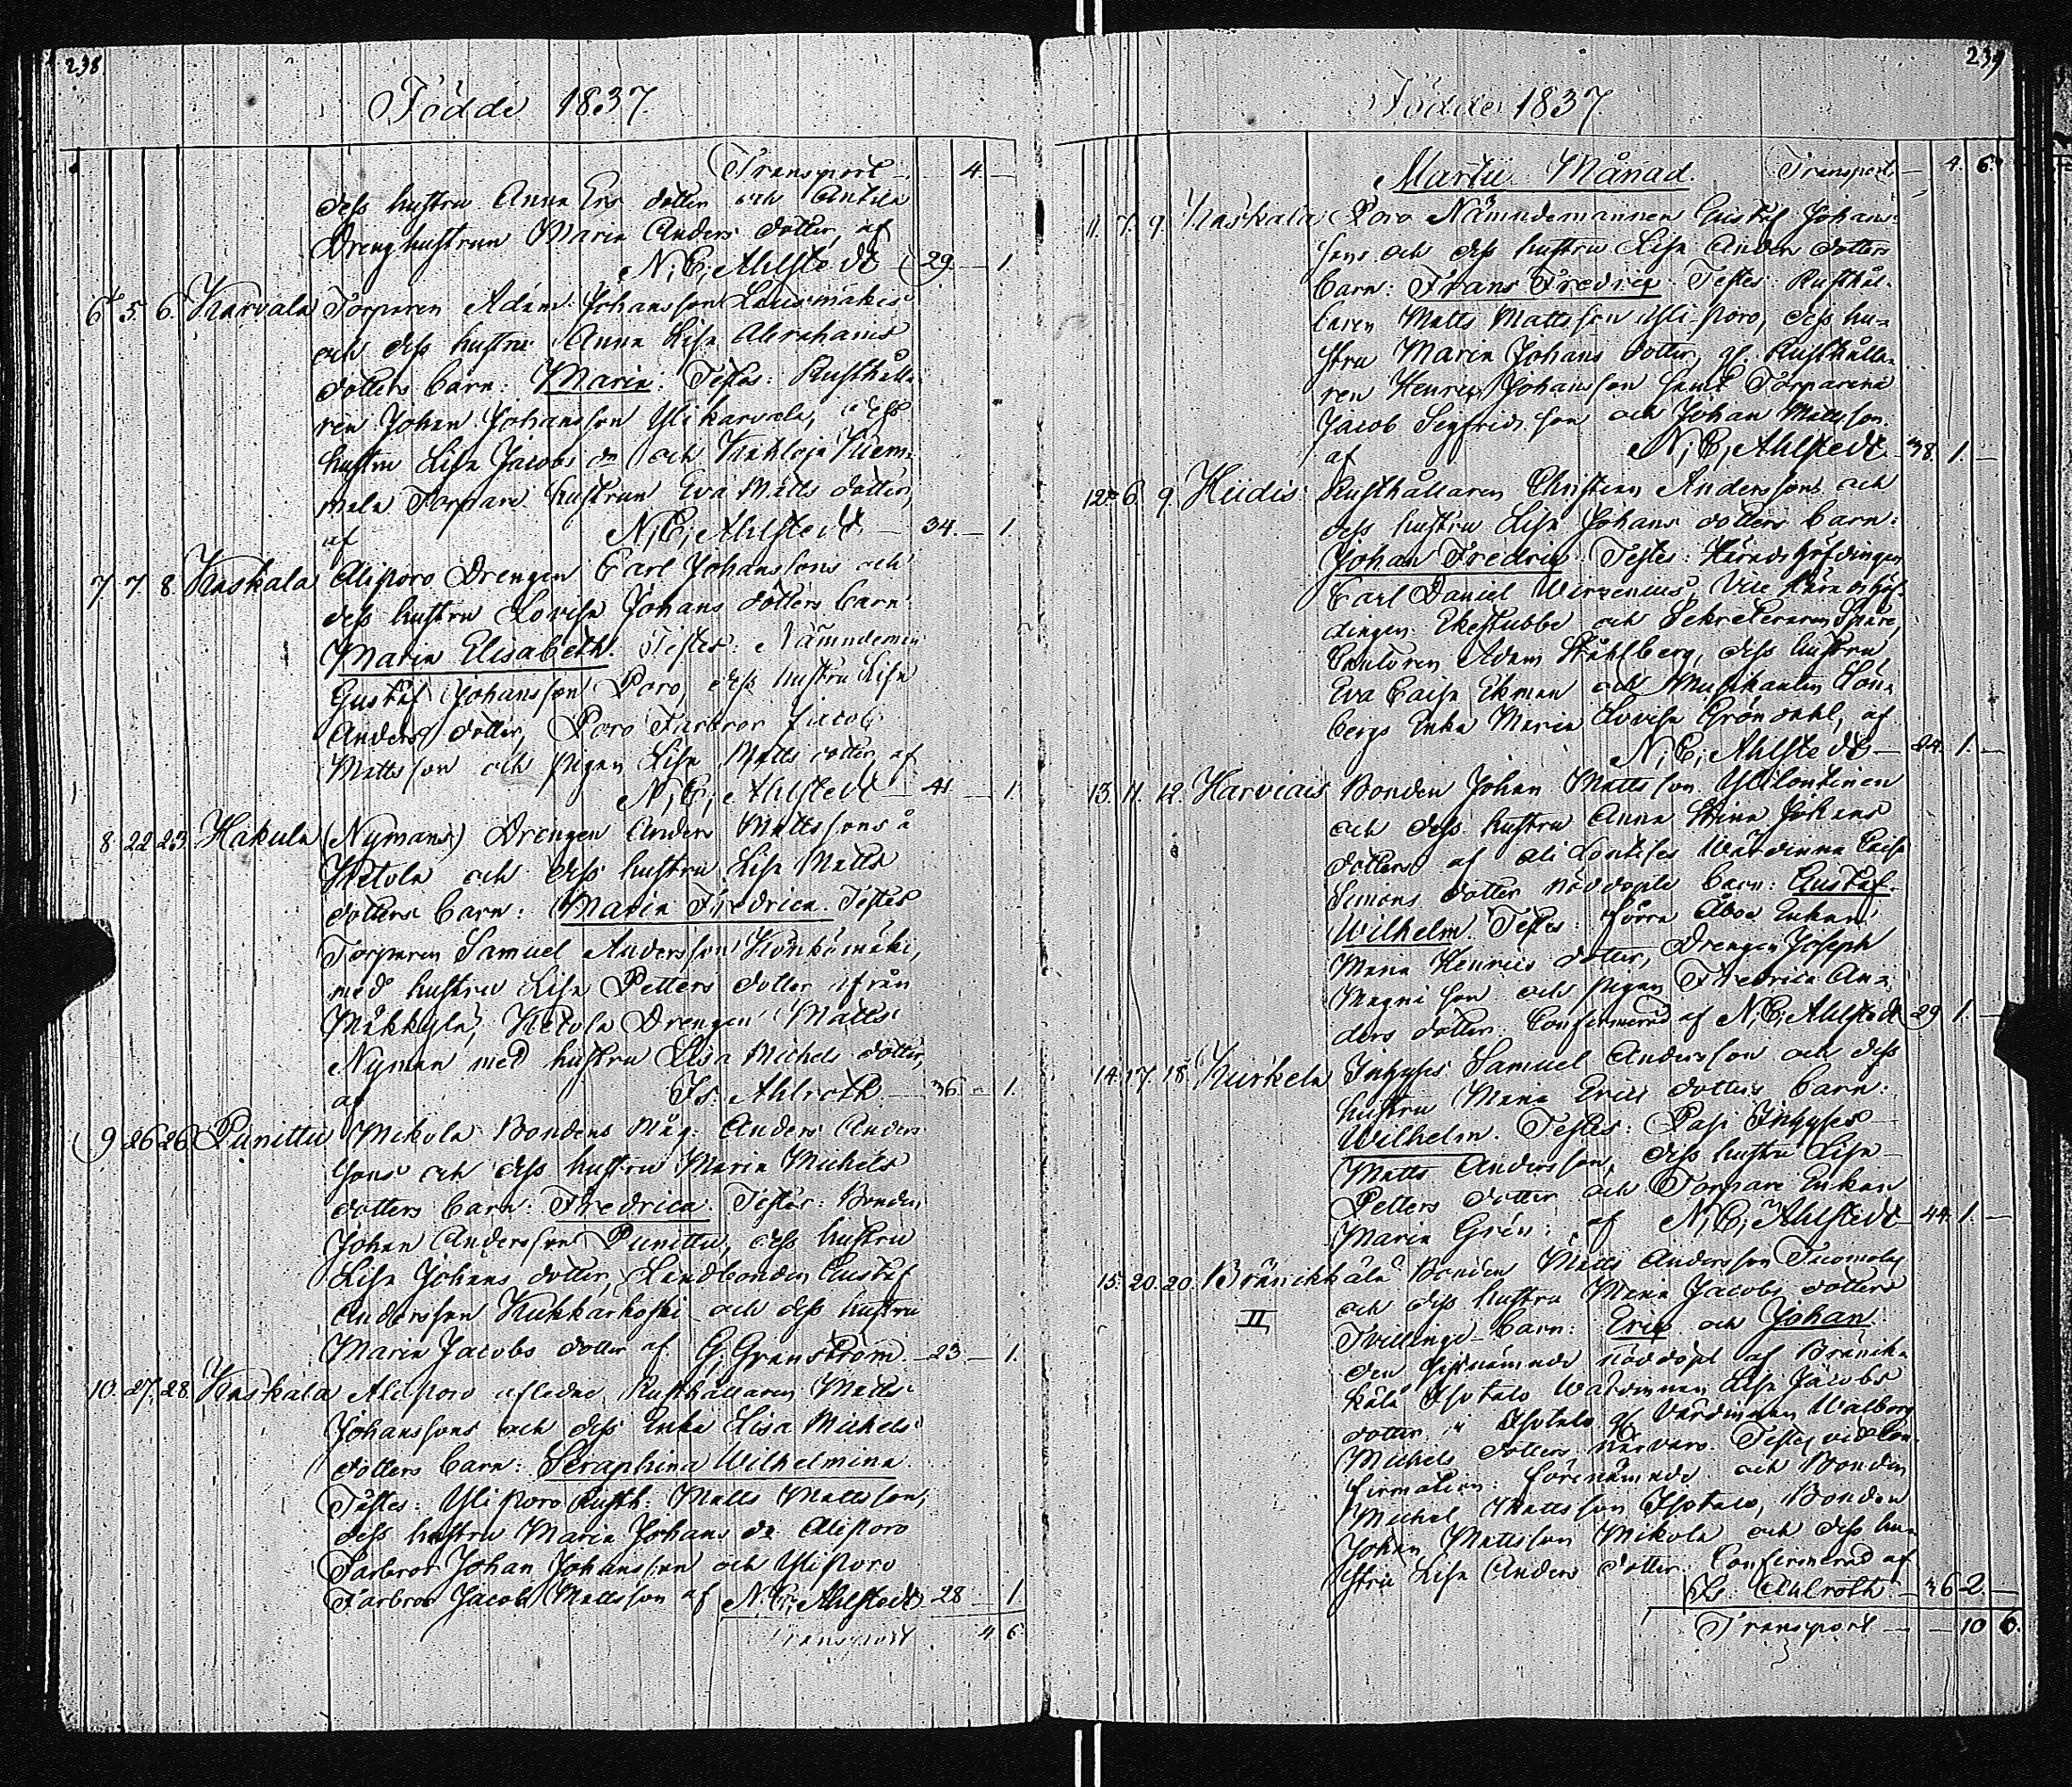 238
Födde 1837.
Transport - 4. -
dess hustru Anna Ers dotter och Antila
Dreng hustrun Maria Anders dotter, af
N, C, Ahlstedt - 29. - 1.
6. 5. 6. Karvala Torparen Adam Johansson Lausmäkis
och dess hustru Anna Lisa Abrahams
dotters barn: Maria. Testes: Rusthålla-
ren Johan Johansson Ylikarvala, dess
hustru Lisa Jacobs dr och
Torpare hustrun Eva Matts dotter,
af N, C, Ahlstedt - 34. - 1.
7. 7. 8. Kaskala Aliporo Drengen Carl Johanssons och
dess hustru Lovisa Johans dotters barn:
Maria Elisabeth. Testes: Nämndemän
Gustaf Johansson Poro, dess hustru Lisa
Anders dotter, Poro Farbror Jacob
Mattsson och pigan Lisa Matts dotter, af
N, C, Ahlstedt - 41. - 1.
8. 22. 23. Hakula (Nymans) Drengen Anders Mattssons å
Ketola och dess hustru Lisa Matts
dotters barn: Maria Fredrica. Testes
Torparen Samuel Andersson Könkömäki,
med hustru Lisa Petters dotter ifrån
Mäkkylä, Ketola Drengen Matts
Nyman med hustru Lisa Michels dotter,
af Is: Ahlroth. - 36. - 1.
9. 26. 26. Punittu Mikola Bondens Måg: Anders Anders
sons och dess hustru Maria Michels
dotters barn: Fredrica. Testes: Bonden
Johan Andersson Punittu, dess hustru
Lisa Johans dotter, Landbonden Gustaf
Andersson Kukkarkoski och dess hustru
Maria Jacobs dotter af G, Granström. - 23. - 1.
10. 27. 28. Kaskala Aliporo aflidne Rusthållaren Matts
Johanssons och dess Enka Lisa Michels
dotters barn: Seraphina Wilhelmina.
Testes: Yliporo Rusth: Matts Mattsson,
dess hustru Maria Johans dr Aliporo
Farbror Johan Johansson och Yliporo
Farbror Jacob Mattsson af N. C, Ahlstedt 28 - 1
Transport 4 6
239
Födde 1837.
Martii Månad. Transport - 4. 6.
11. 7. 9. Kaskala Poro Nämndemannen Gustaf Johans-
sons och dess hustru Lisa Anders dotters
barn: Frans Fredric. Testes: Rusthål-
laren Matts Mattsson Yli-Poro, dess hu-
stru Maria Johans dotter, gl. Rusthålla-
ren Henric Johansson samt Torparena
Jacob Segfridsson och Johan Mattsson.
af N, C, Ahlstedt. - 38. 1. -
12. 6. 9. Hiidis Rusthållaren Christian Anderssons och
dess hustru Lisa Johans dotters barn:
Johan Fredric. Testes: Häradshöfdingen
Carl Daniel Wirzenius, Vice Häradshöf-
dingen Ekestubbe och Sekreteraren Spåre,
Cantoren Adam Ståhlberg, dess hustru
Eva Caisa Ekman och Musikanten Lön-
bergs Enka Maria Lovisa Gröndahl, af
N, C, Ahlstedt - 24. 1. -
13. 11. 12. Harviais Bonden Johan Mattsson Ylilontinen
och dess hustru Anna Stina Johans
dotters af Ali Lontises Wärdinna Caisa
Simons dotter nöddöpte barn: Gustaf
Wilhelm. Testes: förra Åboe Enkan
Maria Henrics dotter, Drengen Joseph
Magni son och pigan Fredrica An-
ders dotter. Confirmerad af N, C, Ahlstedt 29 1. -
14. 17. 18. Kurkela Inhyses Samuel Andersson och dess
hustru Maria Erics dotters barn:
Wilhelm. Testes: Pasi Inhyses
Matts Andersson, dess hustru Lisa
Petters dotter och Torpare Enkan
Maria Grén: af N, C, Ahlstedt 44. 1. -
15. 20. 20. Bränikkälä Bonden Matts Andersson Tuomolas
och dess hustru Maria Jacobs dotters
II Tvillinge-barn: Eric och Johan.
den sistnämnde nöddöpt af Bränik-
kälä Isotalo Wärdinnan Lisa Jacobs
dotter i Isotalo gl Värdinnan Walborg
Michels dotters närvaro. Testes vid Con-
firmation: förenämnde och Bonden
Michel Mattsson Isotalo, Bonden
Johan Mattsson Mikola och dess hu-
stru Lisa Anders dotter. Confirmerad af
Is. Ahlroth - 36 2. -
Transport - - 10 6.